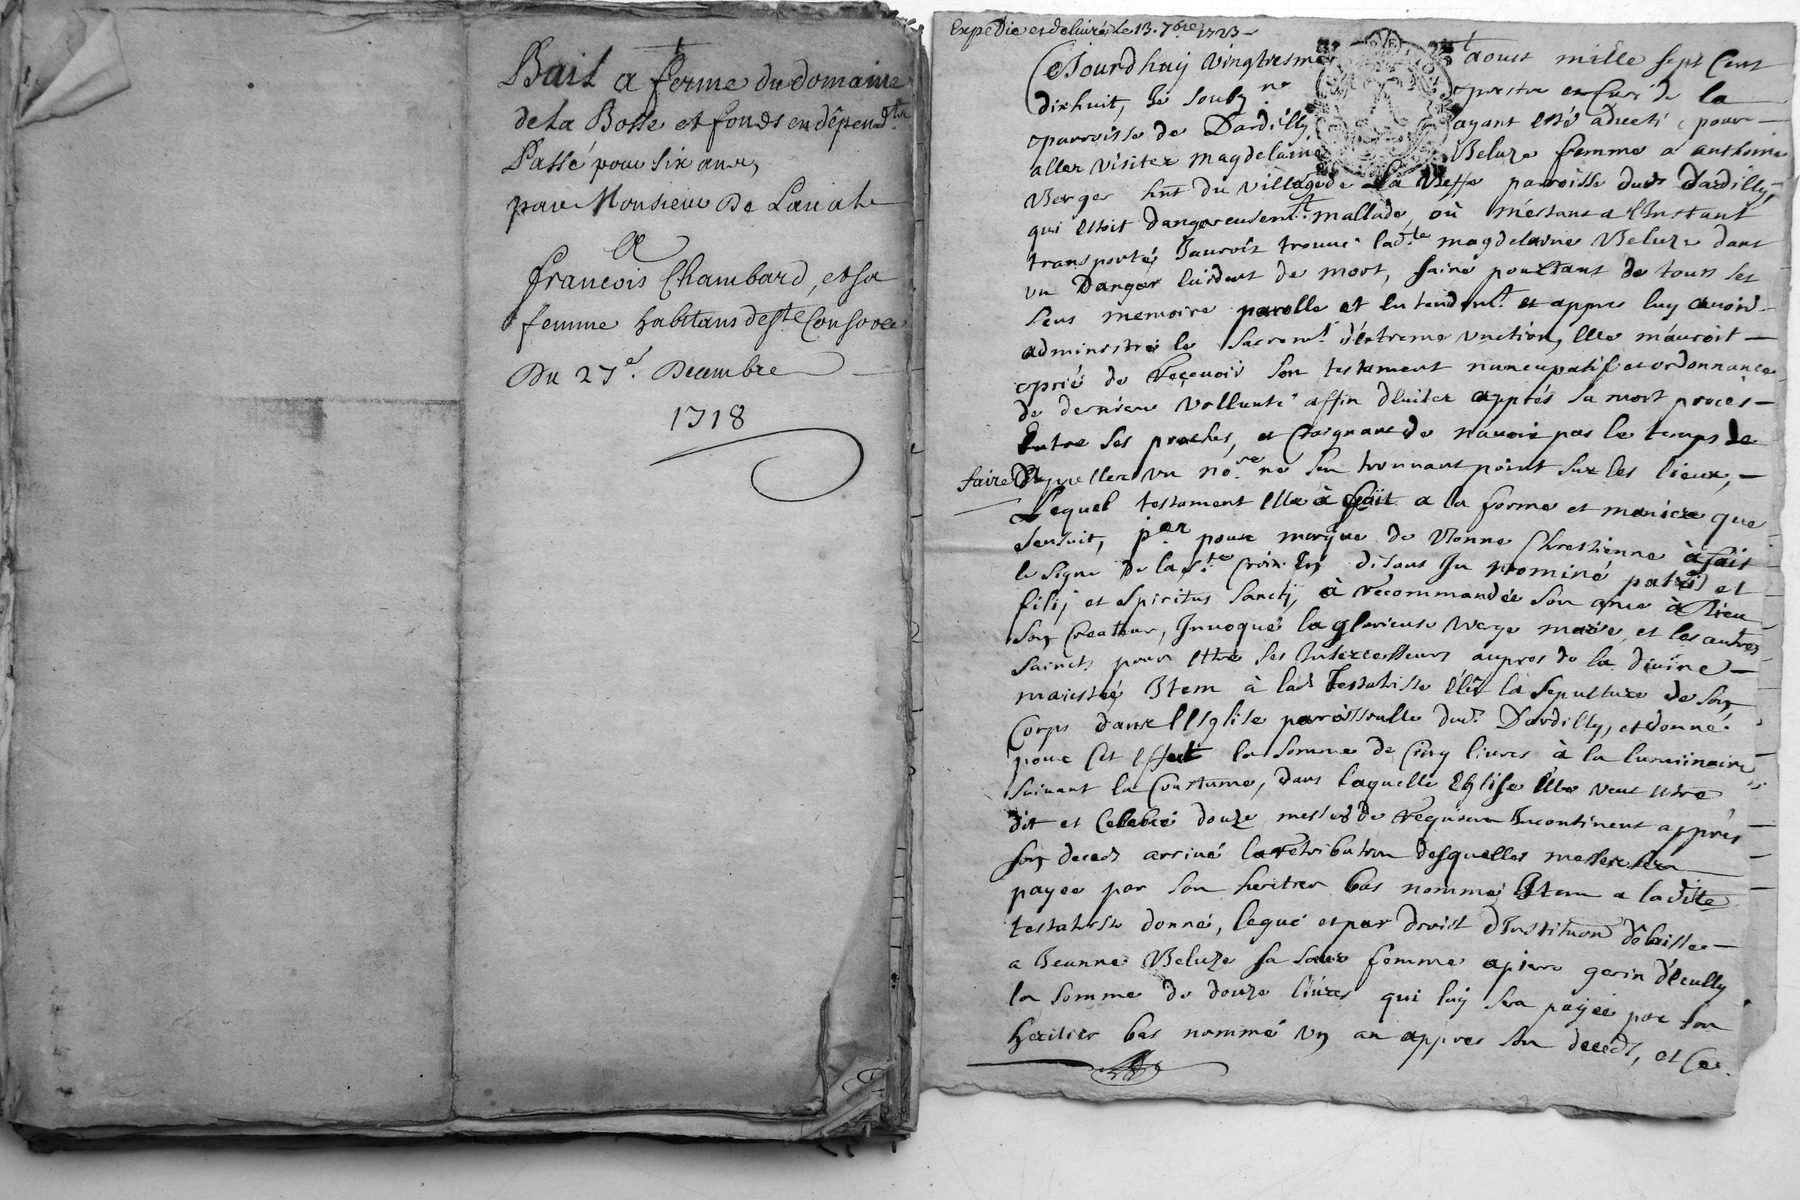 Bail a ferme du domaine
de la Bosse et fonds en dépend.tz
Passé pour six années
par Monsieur De Laual
A
françois Chambard, et sa
femme habitans de s.te Consorce
Du 27e. Decembre
1718
Expedié et deliuré le 13. 7bre 1723
Ce Jourdhuy vingtiesme aoust mille sept Cent
dixhuit, Je soubz.né prestre et Curé de la
parroisse de Dardilly ayant esté aduerti pour
aller visiter magdelaine Beluze femme a anthoine
Verger hnt du village de La Beffe parroisse dud. Dardilly,
qui estoit dangereusem.t mallade, où m'estant a l'Instant
transporté, Jaurois trouué lad.te magdelaine Beluze dans
un Danger Euident de mort, saine pourtant de tous ses
sens memoire parolle et entendem.t et appres luy auoir
administré le sacrem.t d'extreme unction, Elle m'auroit
prié de reçeuoir son testament nuncupatif et ordonnance
de derniere vollunté affin d'Euiter apprés sa mort procès
Entre ses proches, et Craignant de n'auoir pas le temps de
faire appeller un no.re ne s'en trouuant point sur les lieux,
Lequel testament Elle à fait a la forme et maniere que
s'ensuit, p.er pour marque de bonne Chrestienne à fait
le signe de la s.te Croix En disant In nominé patris et
filij et spiritus sancti, à recommandée son ame à Dieu
son Createur, Inuoqué la glorieuse vierge marie, et les autres
saincts pour Ettre ses Intercesseurs aupres de la diuine
maiesté, Item à lad. testatrisse Elû la sepulture de son
Corps dans l'Esglise parroissialle dud. Dardilly, et donné
pour Cet Effect la somme de Cinq liures à la luminaire
suiuant la Coustume, dans laquelle Eglise Elle veut Ettre
dit et Celebré douze messes de requiem Incontinent apprès
son deceds arriué la retribution desquelles messes sera
payée par son heritier bas nommé, Item a ladite
testatrisse donné, legué et par droict d'Institution delaissé
a Jeanne Beluze sa sœur femme a pierre gerin d'Ecully
la somme de douze liures qui luy sera payée par son
heritier bas nommé un an appres son deceds, et Ce